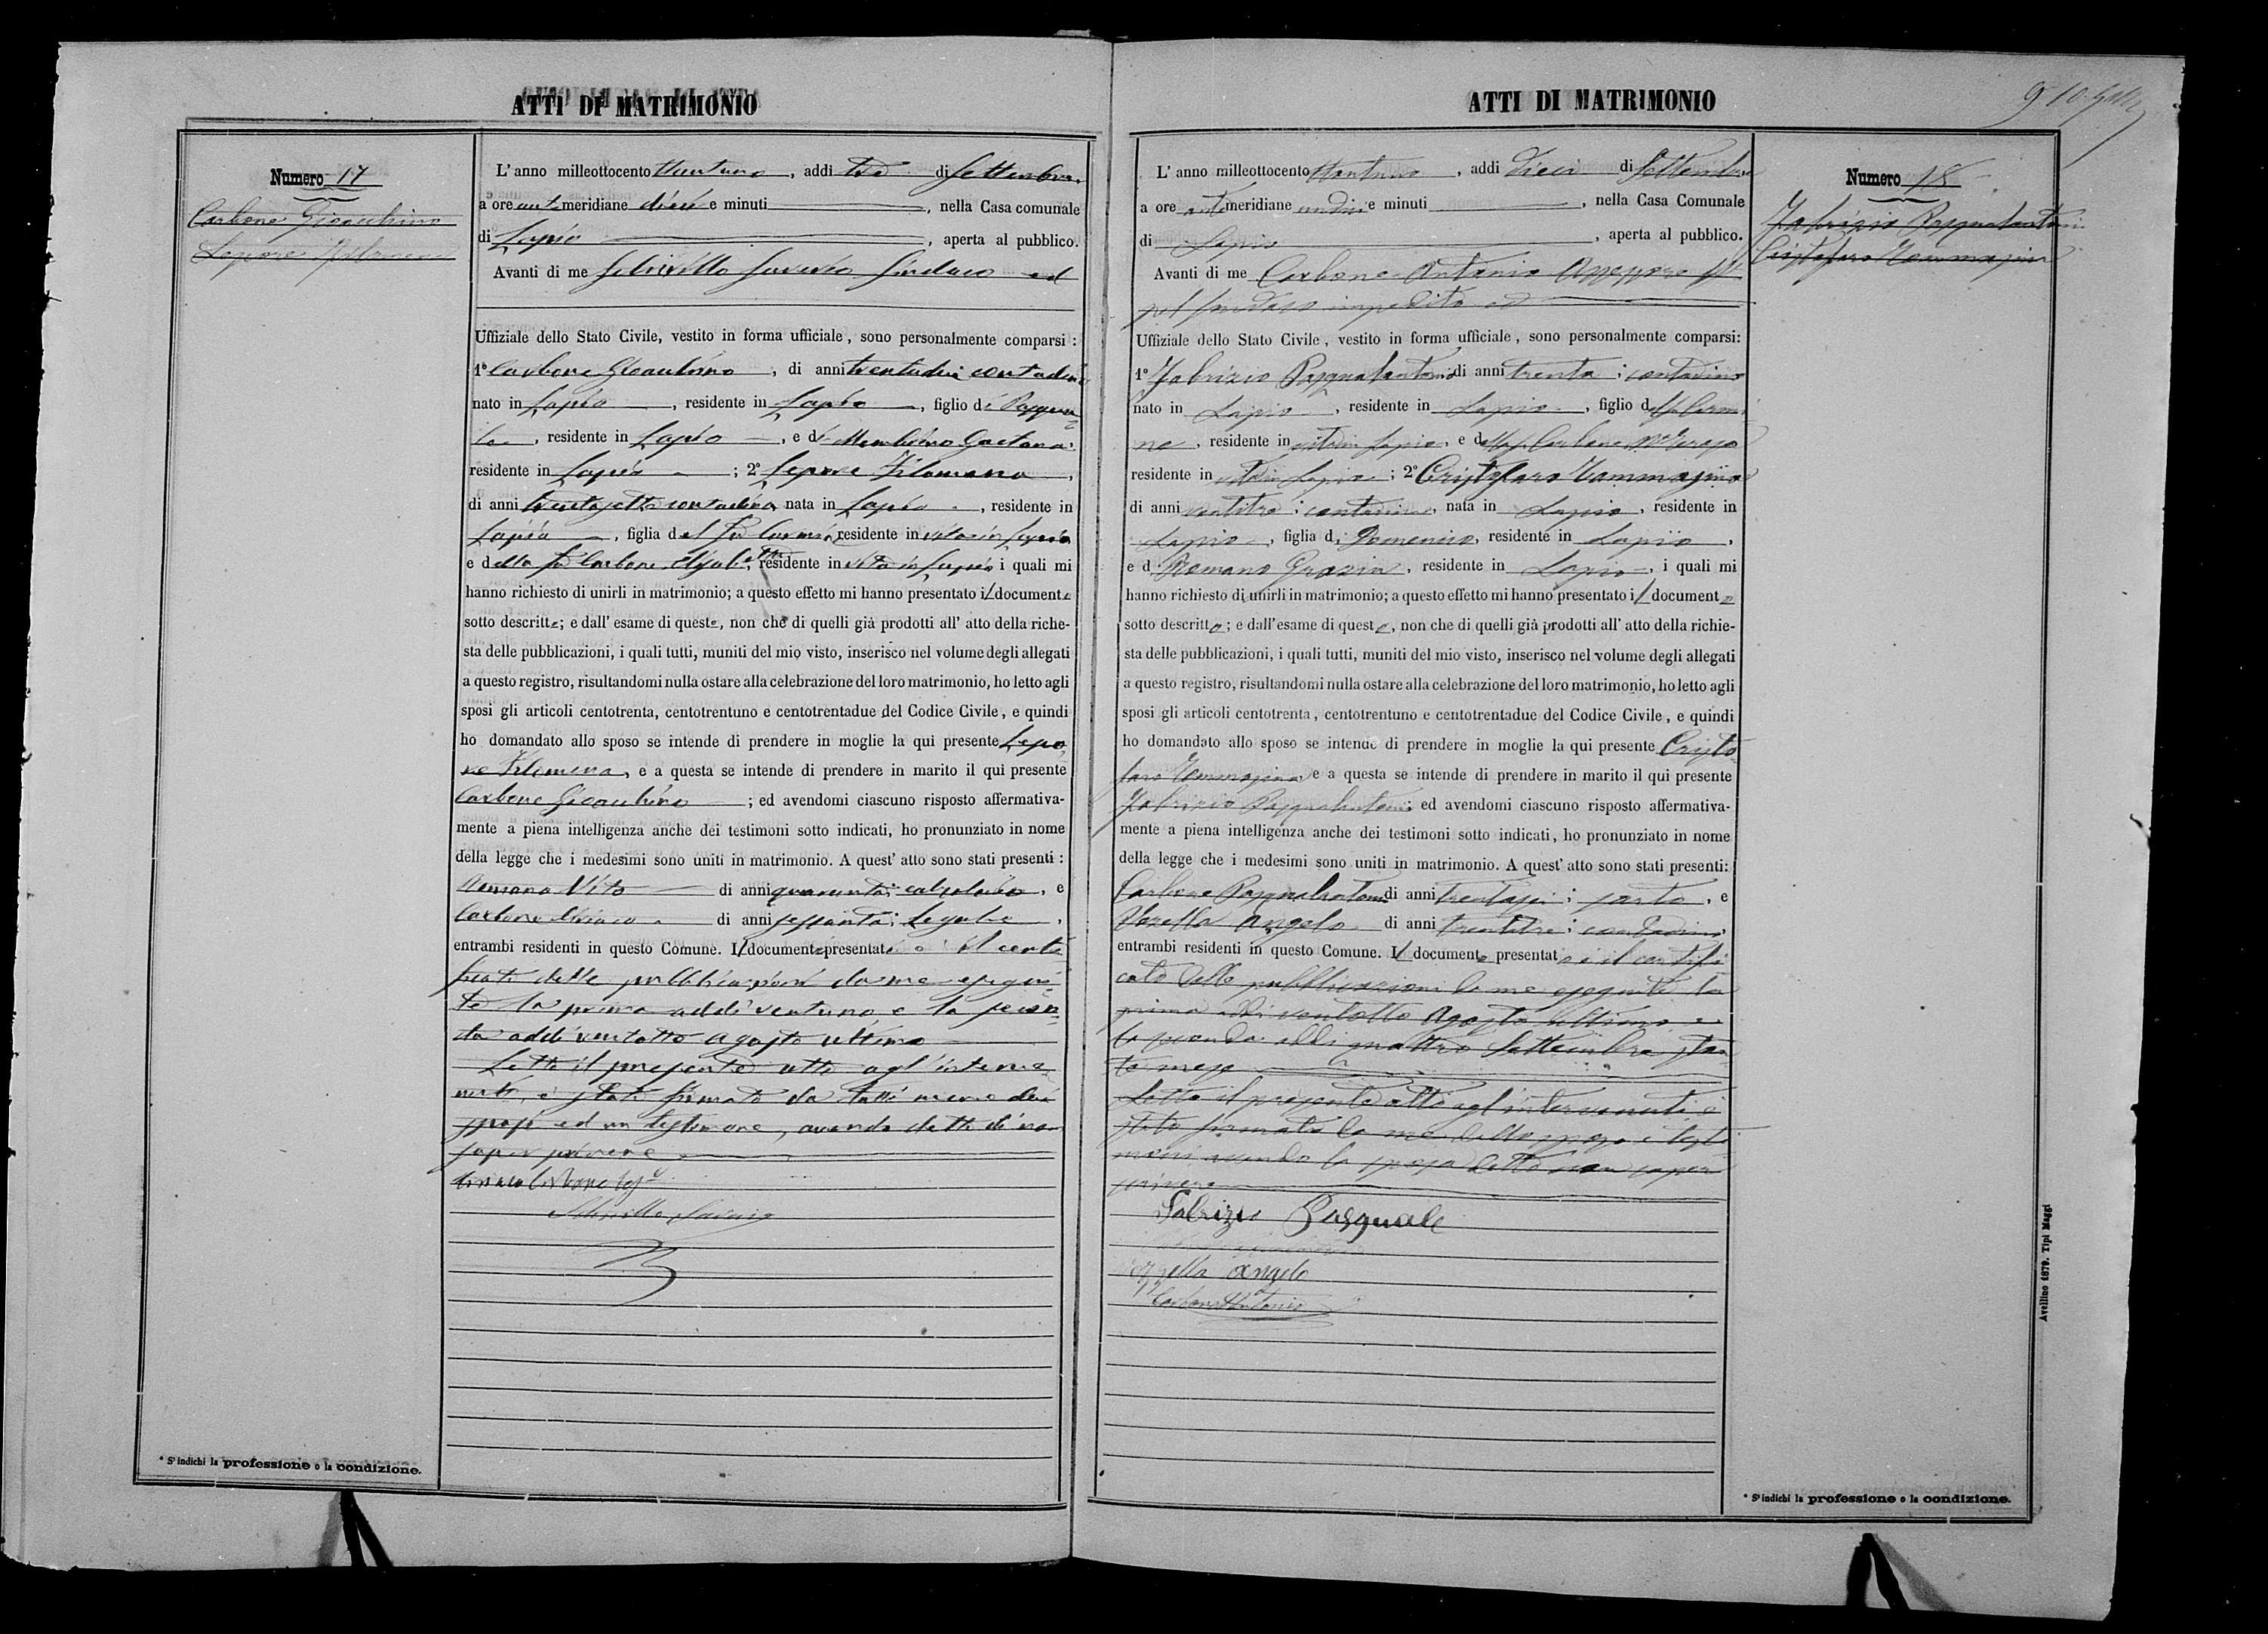 ATTI DI MATRIMONIO
Numero 17
Carbone Gioacchino
Lepore Filomena
L'anno milleottocento ttantuno, addi tre di Settembre
a ore anti meridiane dieci e minuti, nella Casa comunale
di Lapio, aperta al pubblico.
Avanti di me Saverio Sindaco ed
Uffiziale dello Stato Civile, vestito in forma ufficiale, sono personalmente comparsi:
1° Carbone Gioacchino, di anni trentadue contadino
nato in Lapio, residente in Lapio, figlio di Pasqua
le, residente in Lapio, e di Gaetana
residente in Lapio; 2° Lepore Filomena,
di anni trentasette contadina nata in Lapio, residente in
Lapio, figlia del fu Carmine residente in vita in Lapio
e della fu Carbone Elisabetta, residente in vita in Lapio i quali mi
hanno richiesto di unirli in matrimonio; a questo effetto mi hanno presentato il documento
sotto descritto; e dall' esame di questo, non che di quelli già prodotti all' atto della riche-
sta delle pubblicazioni, i quali tutti, muniti del mio visto, inserisco nel volume degli allegati
a questo registro, risultandomi nulla ostare alla celebrazione del loro matrimonio, ho letto agli
sposi gli articoli centotrenta, centotrentuno e centotrentadue del Codice Civile, e quindi
ho domandato allo sposo se intende di prendere in moglie la qui presente Lepo
re Filomena, e a questa se intende di prendere in marito il qui presente
Carbone Gioacchino; ed avendomi ciascuno risposto affermativa-
mente a piena intelligenza anche dei testimoni sotto indicati, ho pronunziato in nome
della legge che i medesimi sono uniti in matrimonio. A quest' atto sono stati presenti:
Romano Vito di anni quaranta; calzolaio, e
Carbone Ciriaco di anni sessanta; legale,
entrambi residenti in questo Comune. Il documento presentato è il certi
ficato delle pubblicazioni da me esegui
te la prima addì ventuno e la secon
da addì ventotto agosto ultimo
Letto il presente atto agl'interve
nuti, è stato firmato da tutti meno dei
sposi ed un testimone, avendo detto di non
saper scrivere
Ciriaco Carbone
Saverio
* S'indichi la professione o la condizione.
ATTI DI MATRIMONIO
L'anno milleottocento ttantuno, addi dieci di Settembre
a ore anti meridiane undici e minuti, nella Casa Comunale
di Lapio, aperta al pubblico.
Avanti di me Carbone Antonio Assessore ff
pel Sindaco impedito ed
Uffiziale dello Stato Civile, vestito in forma ufficiale, sono personalmente comparsi:
1° Fabrizio Pasqualantonio di anni trenta; contadino
nato in Lapio, residente in Lapio, figlio del fu Carmi
ne, residente in vita in Lapio, e della fu Carbone Ma Teresa
residente in vita in Lapio; 2° Cristofaro Tommasina
di anni ventitre; contadina, nata in Lapio, residente in
Lapio, figlia di Domenico, residente in Lapio,
e di Romano Grazia, residente in Lapio, i quali mi
hanno richiesto di unirli in matrimonio; a questo effetto mi hanno presentato il documento
sotto descritto; e dall'esame di questo, non che di quelli già prodotti all' atto della richie-
sta delle pubblicazioni, i quali tutti, muniti del mio visto, inserisco nel volume degli allegati
a questo registro, risultandomi nulla ostare alla celebrazione del loro matrimonio, ho letto agli
sposi gli articoli centotrenta, centotrentuno e centotrentadue del Codice Civile, e quindi
ho domandato allo sposo se intende di prendere in moglie la qui presente Cristo
faro Tommasina e a questa se intende di prendere in marito il qui presente
Fabrizio Pasqualantonio; ed avendomi ciascuno risposto affermativa-
mente a piena intelligenza anche dei testimoni sotto indicati, ho pronunziato in nome
della legge che i medesimi sono uniti in matrimonio. A quest' atto sono stati presenti:
Carbone Pasqualantonio di anni trentasei; sarto, e
Angelo di anni trentatre; contadino
entrambi residenti in questo Comune. Il documento presentato è il certifi
cato delle pubblicazioni da me eseguite la
prima addì ventotto Agosto ultimo e
la seconda addì quattro Settembre stan
te mese
Letto il presente atto agl'intervenuti è
stato firmato da me dallo sposo e testi
moni avendo la sposa detto non saper
scrivere
Fabrizio Pasquale
Angelo
Carbone Antonio
Numero 18
Fabrizio Pasqualantonio
Cristofaro Tommasina
* S'indichi la professione o la condizione.
Avellino 1879. Tipi Maggi